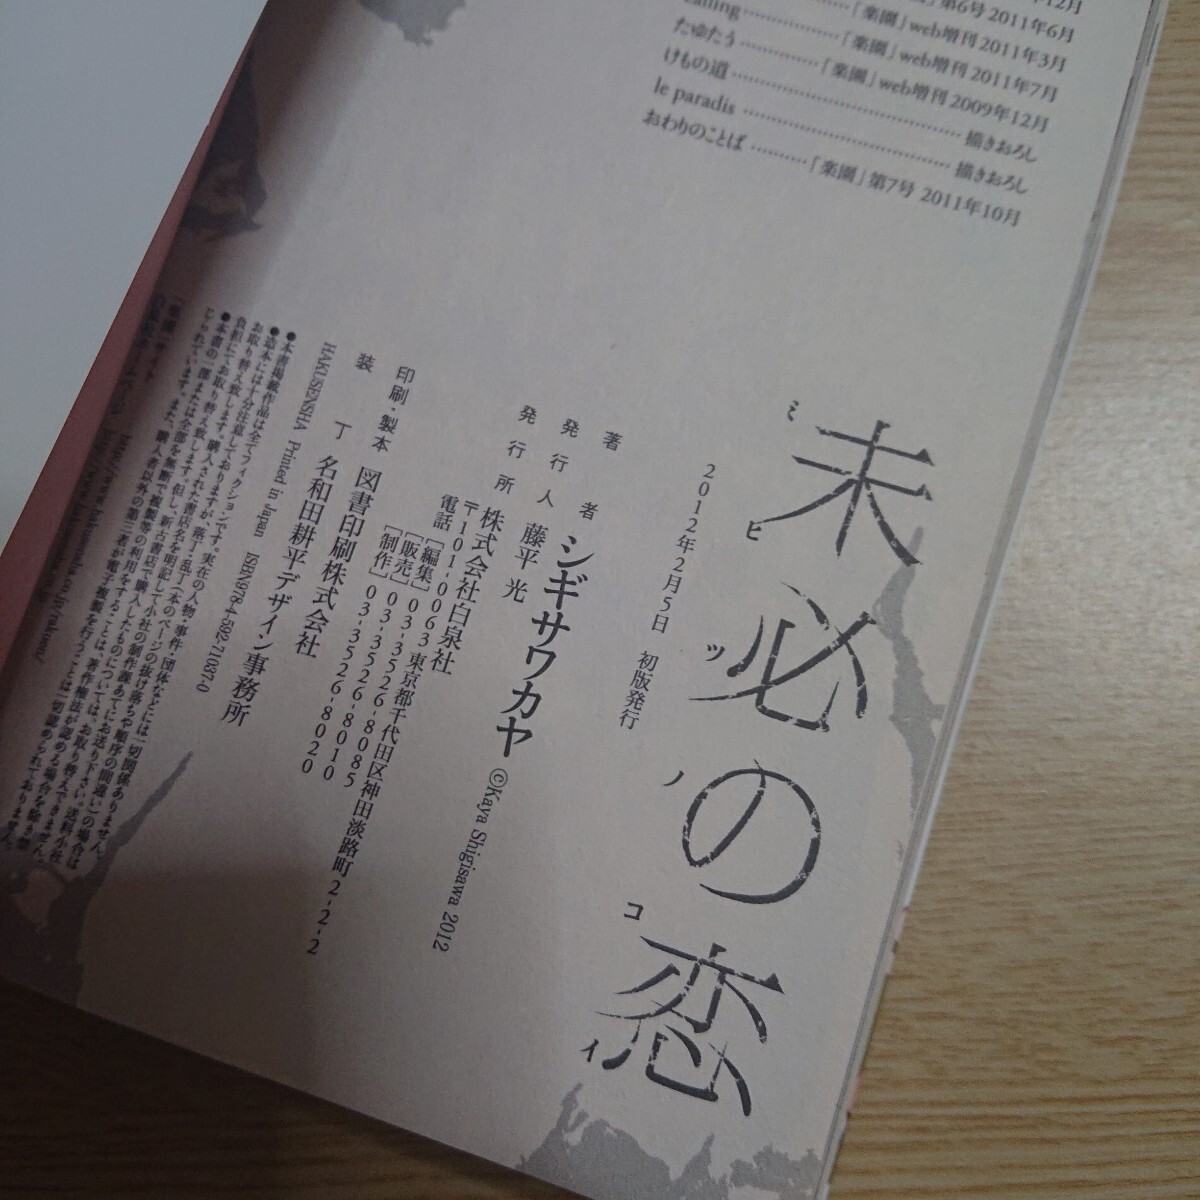 12月
第6号 2011年6月
「楽園」web増刊 2011年3月
たゆたう ……「楽園」web増刊 2011年7月
けもの道 ……「楽園」web増刊 2009年12月
le paradis …… 描きおろし
おわりのことば …… 描きおろし
「楽園」第7号 2011年10月
未必の恋
ミ ヒツ ノ コイ
2012年2月5日 初版発行
著者 シギサワカヤ ©Kaya Shigisawa 2012
発行人 藤平 光
発行所 株式会社白泉社
〒101-0063 東京都千代田区神田淡路町2-2-2
電話 [編集] 03-3526-8085
[販売] 03-3526-8010
[制作] 03-3526-8020
印刷・製本 図書印刷株式会社
装丁 名和田耕平デザイン事務所
HAKUSENSHA Printed in Japan ISBN978-4-592-71037-0
●本書掲載作品は全てフィクションです。実在の人物・事件・団体などには一切関係ありません。
●造本には十分注意しておりますが、落丁・乱丁(本のページの抜け落ちや順序の間違い)の場合は
お取り替え致します。購入された書店名を明記して小社の制作課あてにお送り下さい。送料小社
負担にてお取り替え致します。但し、新古書店で購入したものについては、お取り替えできません。
●本書の一部または全部を無断で複製等の利用をすることは、著作権法が認める場合を除き禁
じられています。また、購入者以外の第三者が電子複製を行うことは一切認められておりません。